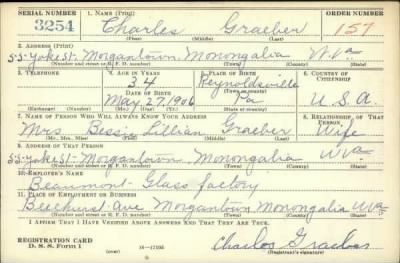 SERIAL NUMBER 1. NAME (Print) ORDER NUMBER
3254 Charles Graeber 157
(First) (Middle) (Last)
2. ADDRESS (Print)
55-Yoke St. Morgantown, Monongalia W. Va
(Number and street or R. F. D. number) (Town) (County) (State)
3. TELEPHONE 4. AGE IN YEARS 5. PLACE OF BIRTH 6. COUNTRY OF CITIZENSHIP
34 Reynoldsville
DATE OF BIRTH (Town or county)
May 27, 1906 Pa U. S. A.
(Exchange) (Number) (Mo.) (Day) (Yr.) (State or country)
7. NAME OF PERSON WHO WILL ALWAYS KNOW YOUR ADDRESS 8. RELATIONSHIP OF THAT PERSON
Mrs Bessie Lillian Graeber Wife
(Mr., Mrs., Miss) (First) (Middle) (Last)
9. ADDRESS OF THAT PERSON
55-Yoke St. Morgantown, Monongalia W Va
(Number and street or R. F. D. number) (Town) (County) (State)
10. EMPLOYER'S NAME
Beaumont Glass factory
11. PLACE OF EMPLOYMENT OR BUSINESS
Beechurst Ave Morgantown, Monongalia W Va
(Number and street or R. F. D. number) (Town) (County) (State)
I AFFIRM THAT I HAVE VERIFIED ABOVE ANSWERS AND THAT THEY ARE TRUE.
REGISTRATION CARD
D. S. S. Form 1 16—17105 Charles Graeber
(Registrant's signature)